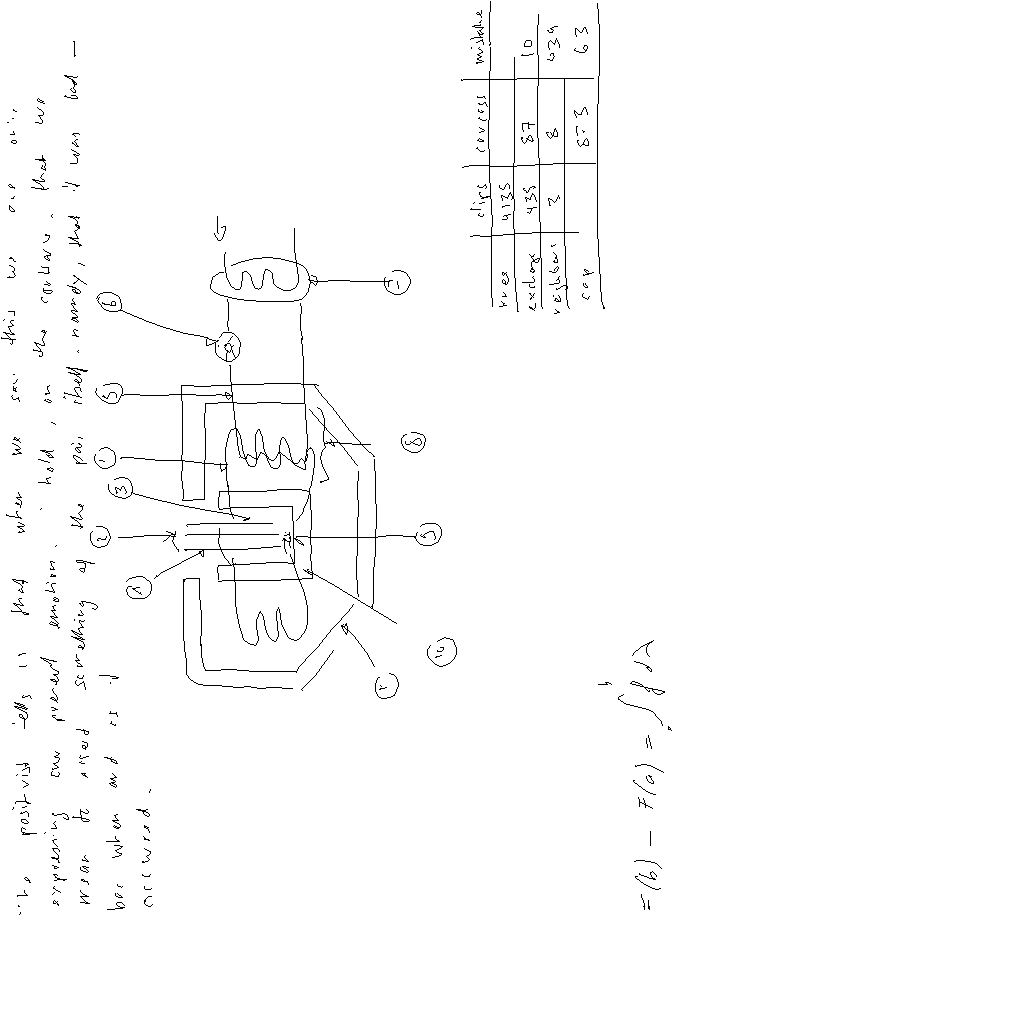 The positivist tells is that when we say this we are only
expressing our present emotion. I hold, on the contrary, that we
mean to assert something of the pain itself, namely, that it was bad —
bad when and as it
occurred.
6
5
1
3
2
1
8
9
7
10
clips caucass mistake
rues 4135
exchange 435 87 10
neighbors 3 8 439
cap 853 63
F(b) — F(a) = ∫ f dλ